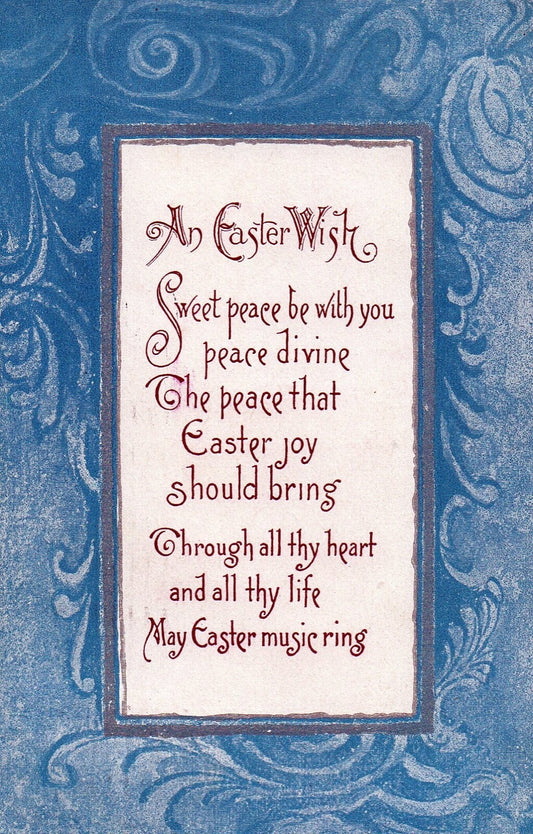 An Easter Wish
Sweet peace be with you
peace divine
The peace that
Easter joy
should bring
Through all thy heart
and all thy life
May Easter music ring